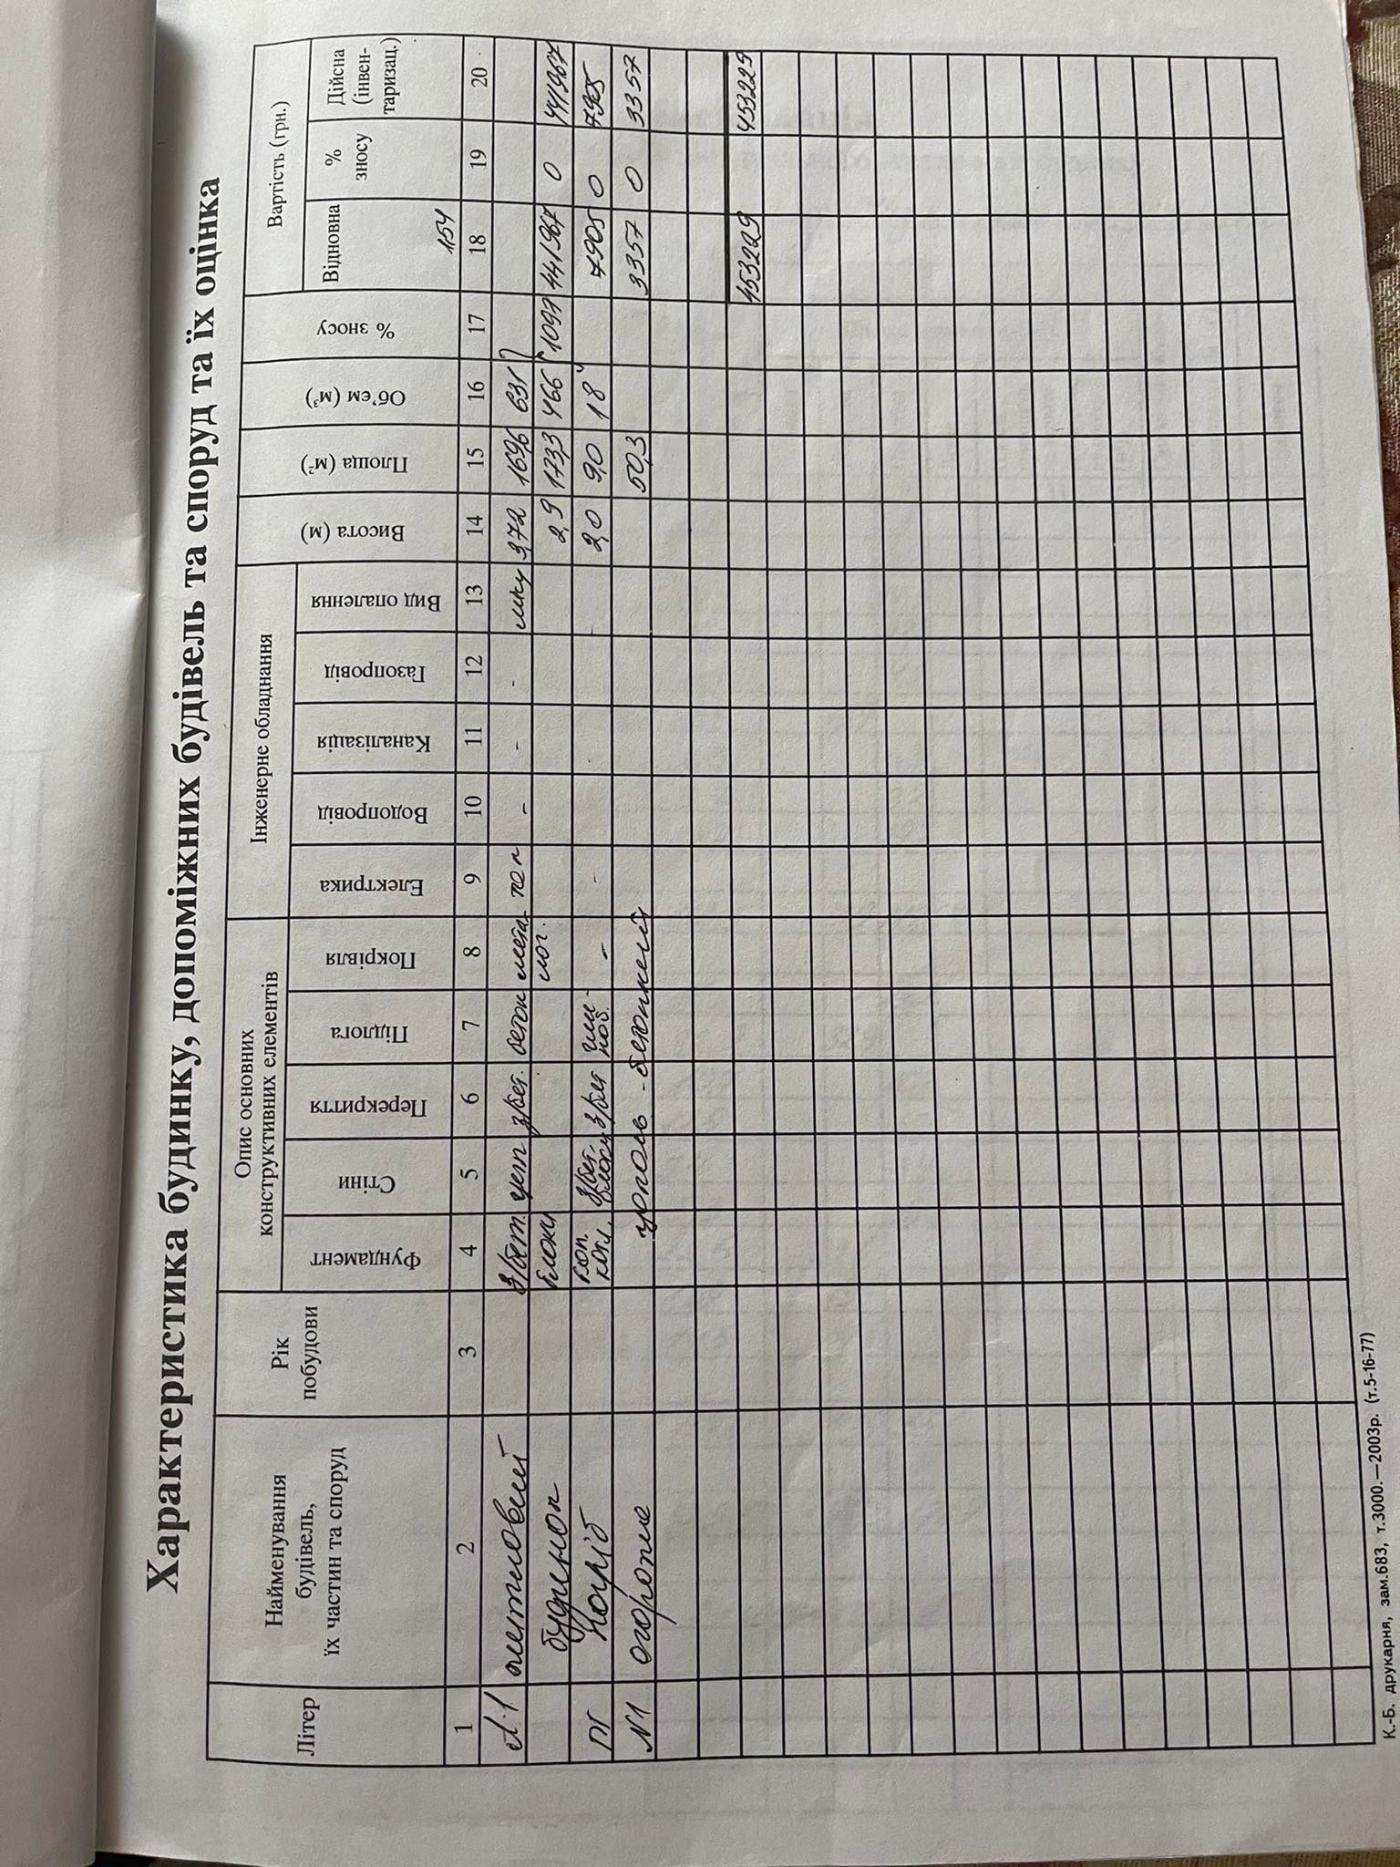 Характеристика будинку, допоміжних будівель та споруд та їх оцінка
Літер
Найменування будівель, їх частин та споруд
Рік побудови
Опис основних конструктивних елементів
Фундамент
Стіни
Перекриття
Підлога
Покрівля
Інженерне обладнання
Електрика
Водопровід
Каналізація
Газопровід
Вид опалення
Висота (м)
Площа (м²)
Об'єм (м³)
% зносу
Вартість (грн.)
Відновна
% зносу
Дійсна (інвентаризац.)
1 2 3 4 5 6 7 8 9 10 11 12 13 14 15 16 17 18 19 20
А-1 житловий з/бет. цегл з/бет. бетон мета - - - 3,72 169,6 631
будинок блоки лог. 2,9 173,3 466 1097 441967 0 441967
ПГ погріб з/бет. блоки з/бет - - - 2,0 9,0 18 7905 0 7905
N1 огорожа цоколь - бетонний 50,3 3357 0 3357
453229 453229
К.-Б. друкарня, зам.683, т.3000.—2003р. (т.5-16-77)